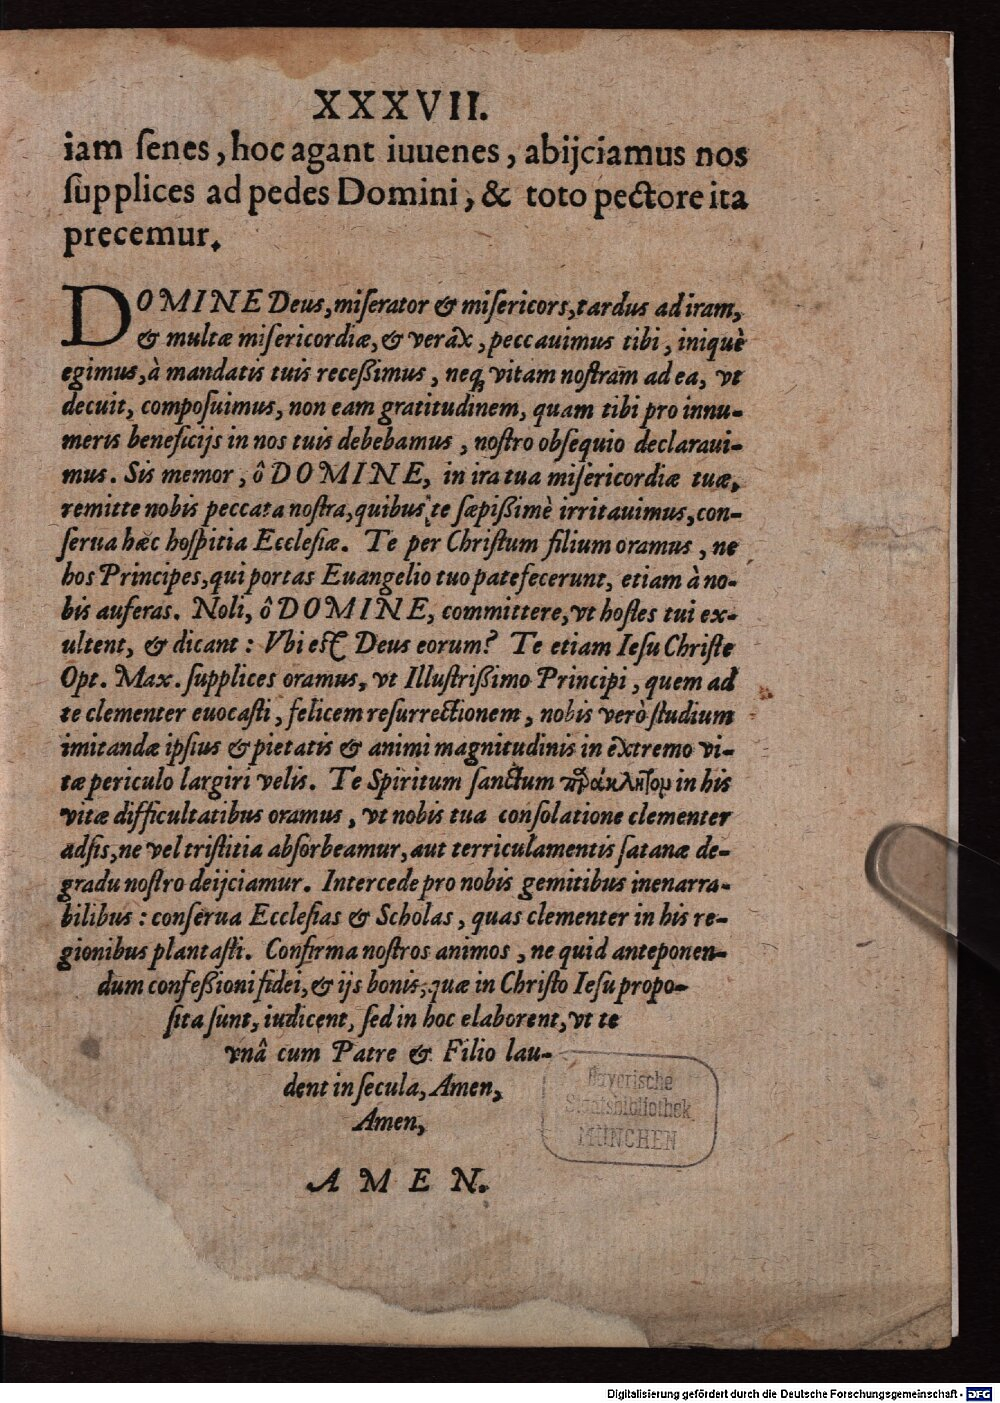 XXXVII.
iam ſenes, hoc agant iuuenes, abijciamus nos
ſupplices ad pedes Domini, & toto pectore ita
precemur.
DOMINE Deus, miſerator & miſericors, tardus ad iram,
& multæ miſericordiæ, & verax, peccauimus tibi, iniquè
egimus, à mandatis tuis receßimus, neq; vitam noſtram ad ea, vt
decuit, compoſuimus, non eam gratitudinem, quam tibi pro innu-
meris beneficijs in nos tuis debebamus, noſtro obſequio declaraui-
mus. Sis memor, ô DOMINE, in ira tua miſericordiæ tuæ,
remitte nobis peccata noſtra, quibus te ſæpißimè irritauimus, con-
ſerua hæc hoſpitia Eccleſiæ. Te per Chriſtum filium oramus, ne
hos Principes, qui portas Euangelio tuo patefecerunt, etiam à no-
bis auferas. Noli, ô DOMINE, committere, vt hoſtes tui ex-
ultent, & dicant: Vbi eſt Deus eorum? Te etiam Ieſu Chriſte
Opt. Max. ſupplices oramus, vt Illuſtrißimo Principi, quem ad
te clementer euocaſti, felicem reſurrectionem, nobis verò ſtudium
imitandæ ipſius & pietatis & animi magnitudinis in extremo vi-
tæ periculo largiri velis. Te Spiritum ſanctum παράκλητομ in his
vitæ difficultatibus oramus, vt nobis tua conſolatione clementer
adſis, ne vel triſtitia abſorbeamur, aut terriculamentis ſatanæ de-
gradu noſtro deijciamur. Intercede pro nobis gemitibus inenarra-
bilibus: conſerua Eccleſias & Scholas, quas clementer in his re-
gionibus plantaſti. Confirma noſtros animos, ne quid anteponen-
dum confeßioni fidei, & ijs bonis, quæ in Chriſto Ieſu propo-
ſita ſunt, iudicent, ſed in hoc elaborent, vt te
vnâ cum Patre & Filio lau-
dent in ſecula, Amen,
Amen,
AMEN.
Bayerische
Staatsbibliothek
MÜNCHEN
Digitalisierung gefördert durch die Deutsche Forschungsgemeinschaft - DFG